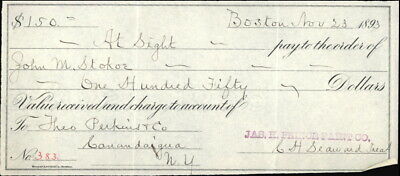 $150.— Boston Nov 23 1893
At Sight pay to the order of
John M. Stokoe
One Hundred Fifty Dollars
Value received and charge to account of
To Theo Perkins & Co
Canandaigua
N. Y.
JAS. H. PRINCE PAINT CO.
C H Seaward Treas
No. 383